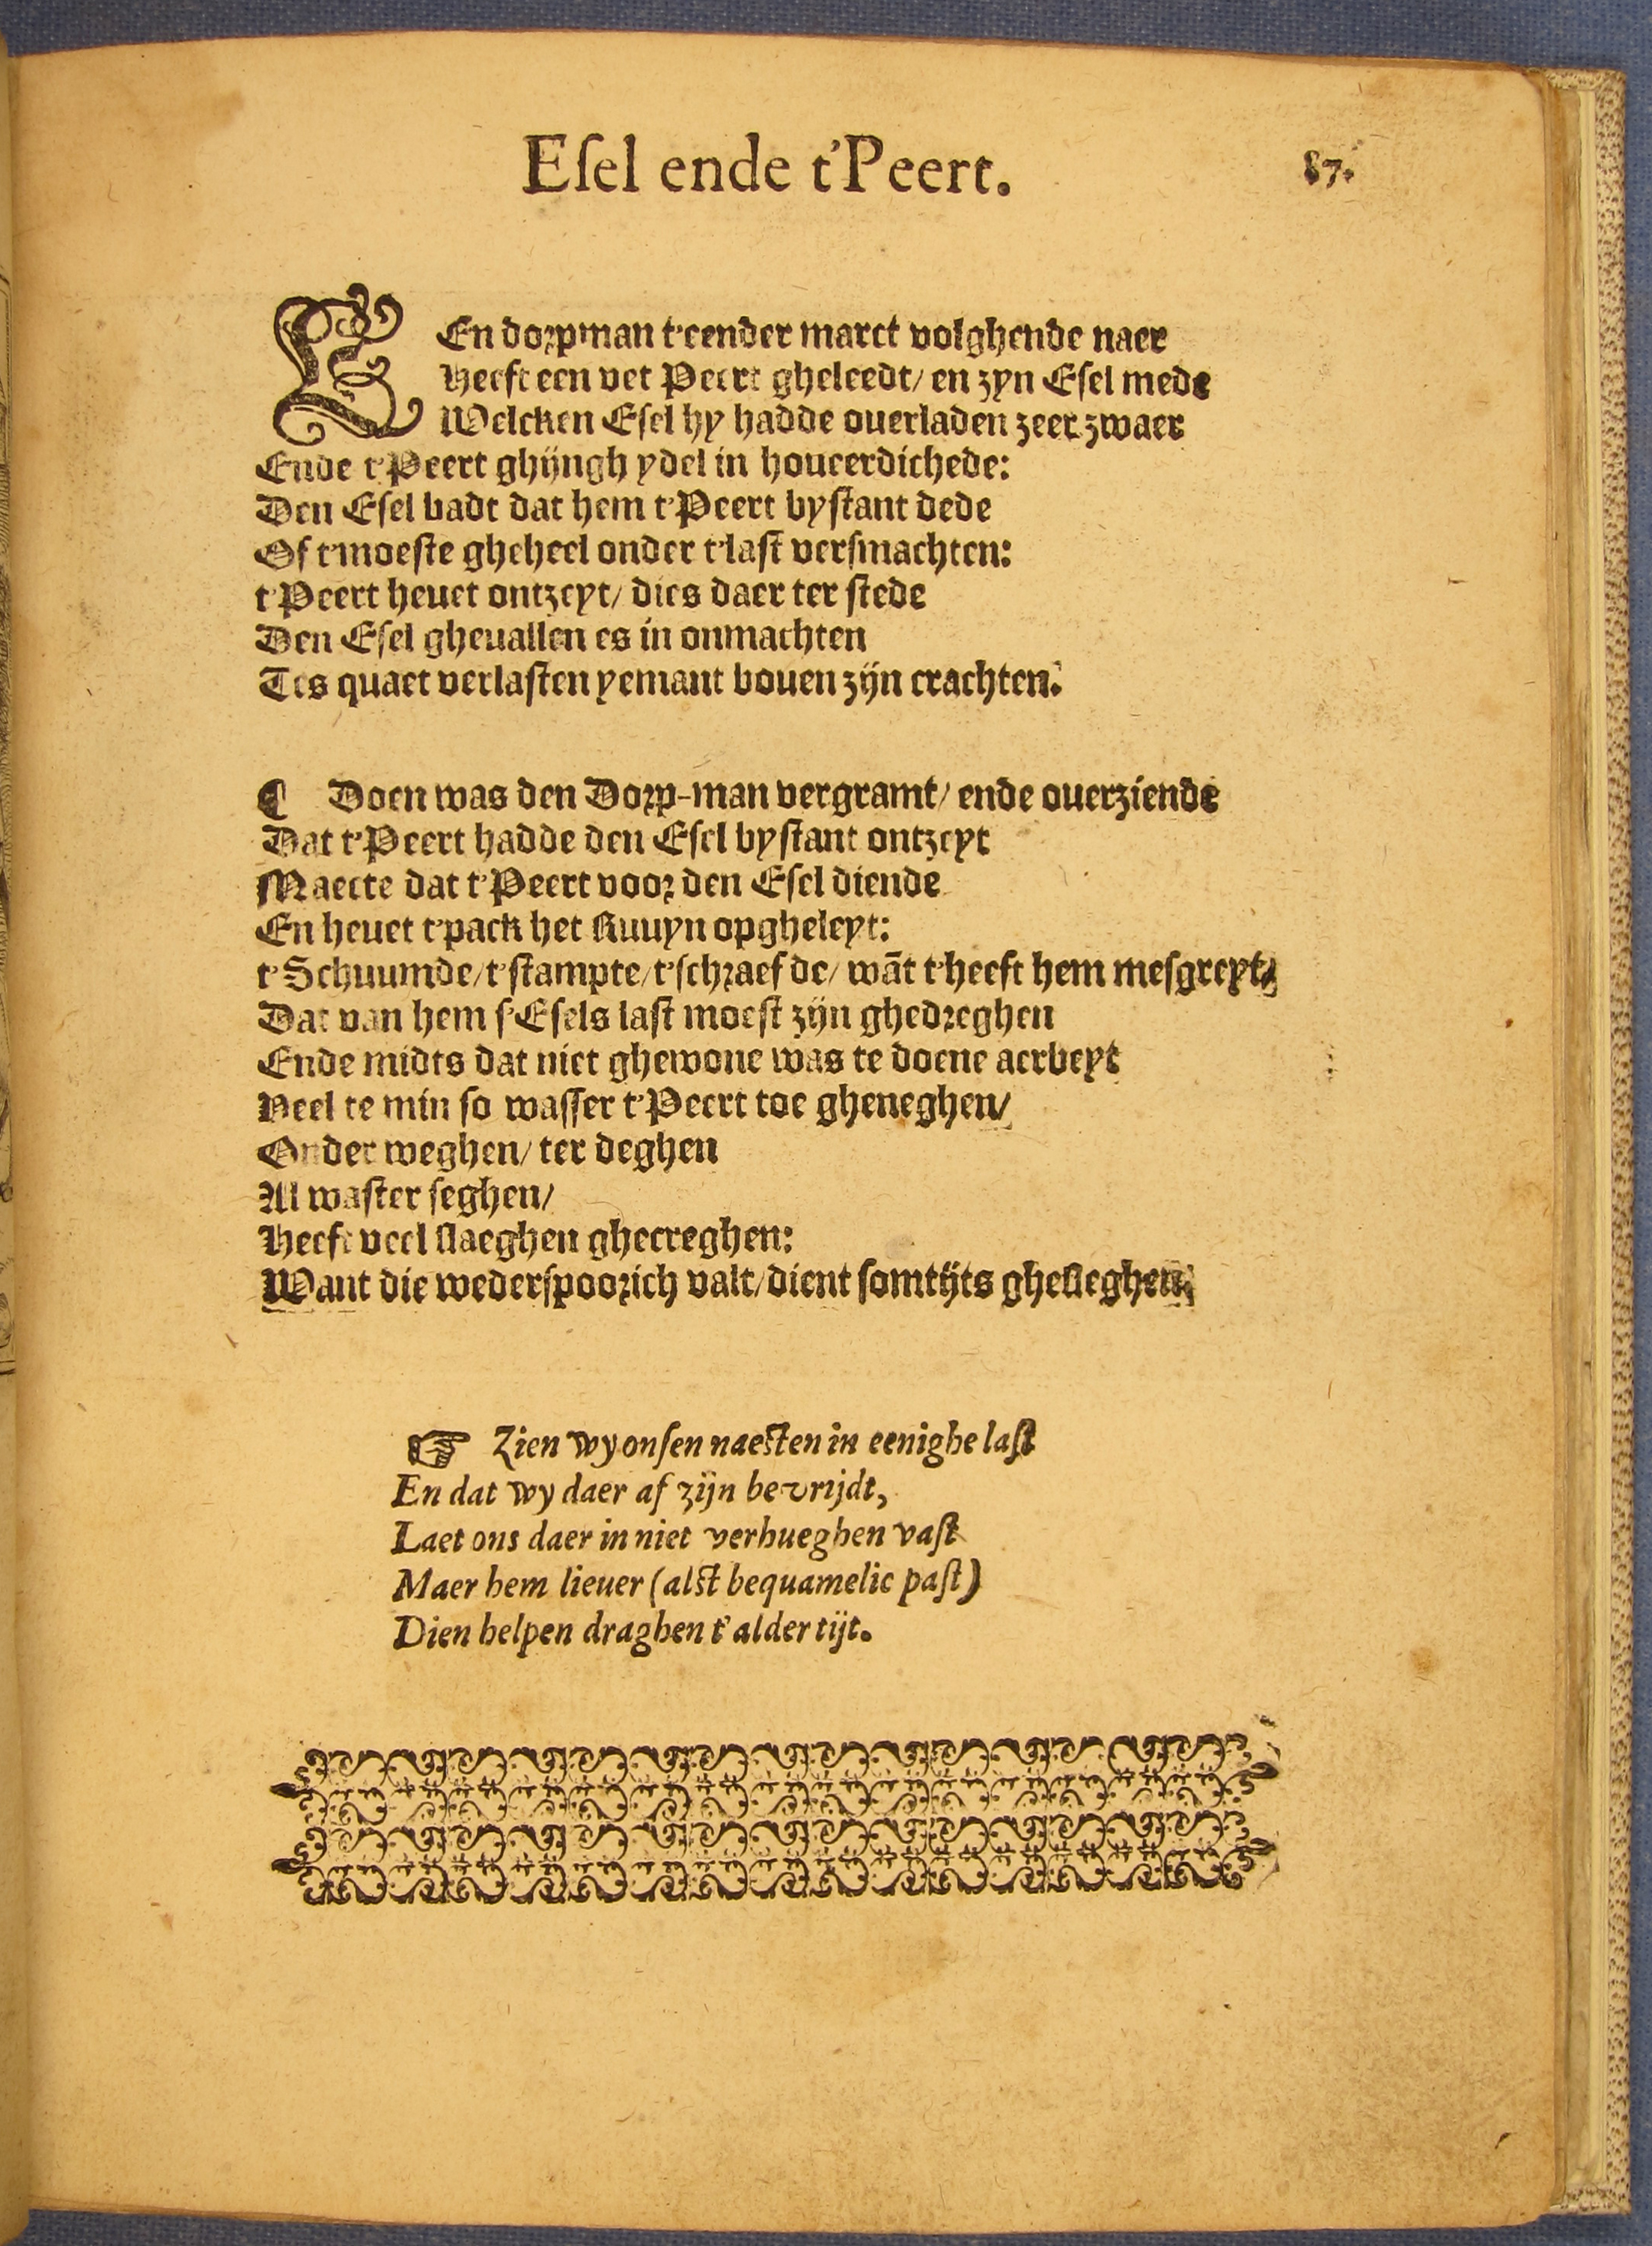 Eſel ende t'Peert.
87.
EEn dorpman t'eender marct volghende naer
Heeft een vet Peert gheleedt/ en zyn Eſel mede
Welcken Eſel hy hadde ouerladen zeer zwaer
Ende t'Peert ghijngh ydel in houeerdichede:
Den Eſel badt dat hem t'Peert byſtant dede
Of t'moeſte gheheel onder t'laſt verſmachten:
t'Peert heuet ontzeyt/ dies daer ter ſtede
Den Eſel gheuallen es in onmachten
Tes quaet verlaſten yemant bouen zijn crachten.
¶ Doen was den Dorp-man vergramt/ ende ouerziende
Dat t'Peert hadde den Eſel byſtant ontzeyt
Maecte dat t'Peert voor den Eſel diende
En heuet t'pack het Ruuyn opgheleyt:
t'Schuumde/ t'ſtampte/ t'ſchraefde/ wāt t'heeft hem meſgreyt/
Dat van hem ſ'Eſels laſt moeſt zijn ghedreghen
Ende midts dat niet ghewone was te doene aerbeyt
Veel te min ſo waſſer t'Peert toe gheneghen/
Onder weghen/ ter deghen
Al waſter ſeghen/
Heeft veel ſlaeghen ghecreghen:
Want die wederſpoorich valt/ dient ſomtijts gheſleghen.
☞ Zien wy onſen naeſten in eenighe laſt
En dat wy daer af zijn bevrijdt,
Laet ons daer in niet verhueghen vaſt
Maer hem lieuer (alſt bequamelic paſt)
Dien helpen draghen t'alder tijt.